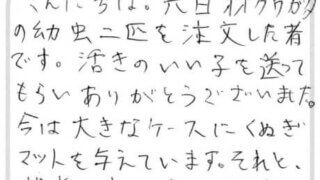 こんにちは。六日
の幼虫二匹を注文した者
です。活きのいい子を送って
もらいありがとうございました。
今は大きなケースにくぬぎ
マットを与えています。それと、